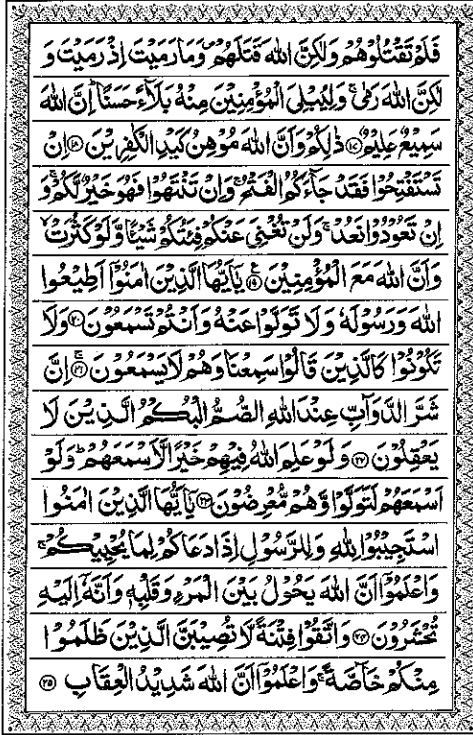 فَلَمْ تَقْتُلُوْهُمْ وَلٰكِنَّ اللّٰهَ قَتَلَهُمْ ۪ وَمَا رَمَيْتَ اِذْ رَمَيْتَ وَ
لٰكِنَّ اللّٰهَ رَمٰى ۚ وَلِيُبْلِيَ الْمُؤْمِنِيْنَ مِنْهُ بَلَآءً حَسَنًا ؕ اِنَّ اللّٰهَ
سَمِيْعٌ عَلِيْمٌ ﴿۱۷﴾ ذٰلِكُمْ وَاَنَّ اللّٰهَ مُوْهِنُ كَيْدِ الْكٰفِرِيْنَ ﴿۱۸﴾ اِنْ
تَسْتَفْتِحُوْا فَقَدْ جَآءَكُمُ الْفَتْحُ ۚ وَاِنْ تَنْتَهُوْا فَهُوَ خَيْرٌ لَّكُمْ ۚ وَ
اِنْ تَعُوْدُوْا نَعُدْ ۚ وَلَنْ تُغْنِيَ عَنْكُمْ فِئَتُكُمْ شَيْـًٔا وَّلَوْ كَثُرَتْ ۙ
وَاَنَّ اللّٰهَ مَعَ الْمُؤْمِنِيْنَ ﴿۱۹﴾ يٰۤاَيُّهَا الَّذِيْنَ اٰمَنُوْۤا اَطِيْعُوا
اللّٰهَ وَرَسُوْلَهٗ وَلَا تَوَلَّوْا عَنْهُ وَاَنْتُمْ تَسْمَعُوْنَ ﴿۲۰﴾ وَلَا
تَكُوْنُوْا كَالَّذِيْنَ قَالُوْا سَمِعْنَا وَهُمْ لَا يَسْمَعُوْنَ ﴿۲۱﴾ اِنَّ
شَرَّ الدَّوَآبِّ عِنْدَ اللّٰهِ الصُّمُّ الْبُكْمُ الَّذِيْنَ لَا
يَعْقِلُوْنَ ﴿۲۲﴾ وَلَوْ عَلِمَ اللّٰهُ فِيْهِمْ خَيْرًا لَّاَسْمَعَهُمْ ؕ وَلَوْ
اَسْمَعَهُمْ لَتَوَلَّوْا وَّهُمْ مُّعْرِضُوْنَ ﴿۲۳﴾ يٰۤاَيُّهَا الَّذِيْنَ اٰمَنُوا
اسْتَجِيْبُوْا لِلّٰهِ وَلِلرَّسُوْلِ اِذَا دَعَاكُمْ لِمَا يُحْيِيْكُمْ ۚ
وَاعْلَمُوْۤا اَنَّ اللّٰهَ يَحُوْلُ بَيْنَ الْمَرْءِ وَقَلْبِهٖ وَاَنَّهٗۤ اِلَيْهِ
تُحْشَرُوْنَ ﴿۲۴﴾ وَاتَّقُوْا فِتْنَةً لَّا تُصِيْبَنَّ الَّذِيْنَ ظَلَمُوْا
مِنْكُمْ خَآصَّةً ۚ وَاعْلَمُوْۤا اَنَّ اللّٰهَ شَدِيْدُ الْعِقَابِ ﴿۲۵﴾